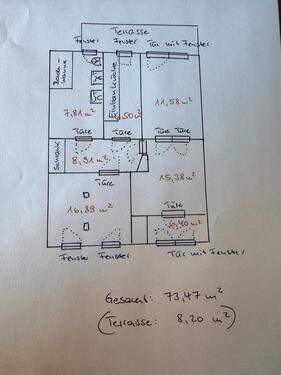 Terrasse
Fenster
Fenster
Tür mit Fenster
Bade-
wanne
Einbauküche
7,81 m²
6,50 m²
11,58 m²
Türe
Türe
Türe Türe
Schrank
8,91 m²
Türe
15,38 m²
16,89 m²
Türe
6,40 m²
Fenster
Fenster
Tür mit Fenster
Gesamt: 73,47 m²
(Terrasse: 8,20 m²)